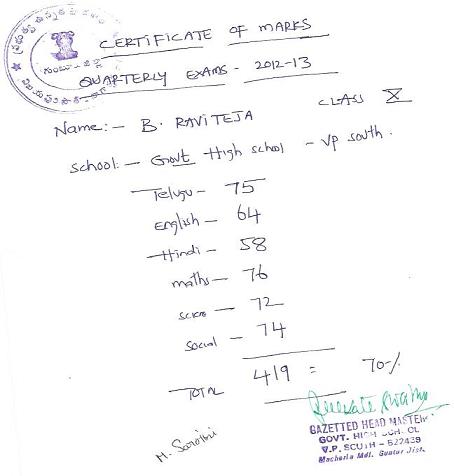 CERTIFICATE OF MARKS
QUARTERLY EXAMS - 2012-13
CLASS X
Name:- B. RAVITEJA
School:- Govt High school - VP South.
Telugu - 75
English - 64
Hindi - 58
maths - 76
72
Social - 74
TOTAL 419 = 70-/.
GAZETTED HEAD MASTER
GOVT. HIGH SCHOOL
V.P. SOUTH - 522439
Macherla Mdl. Guntur Jist.